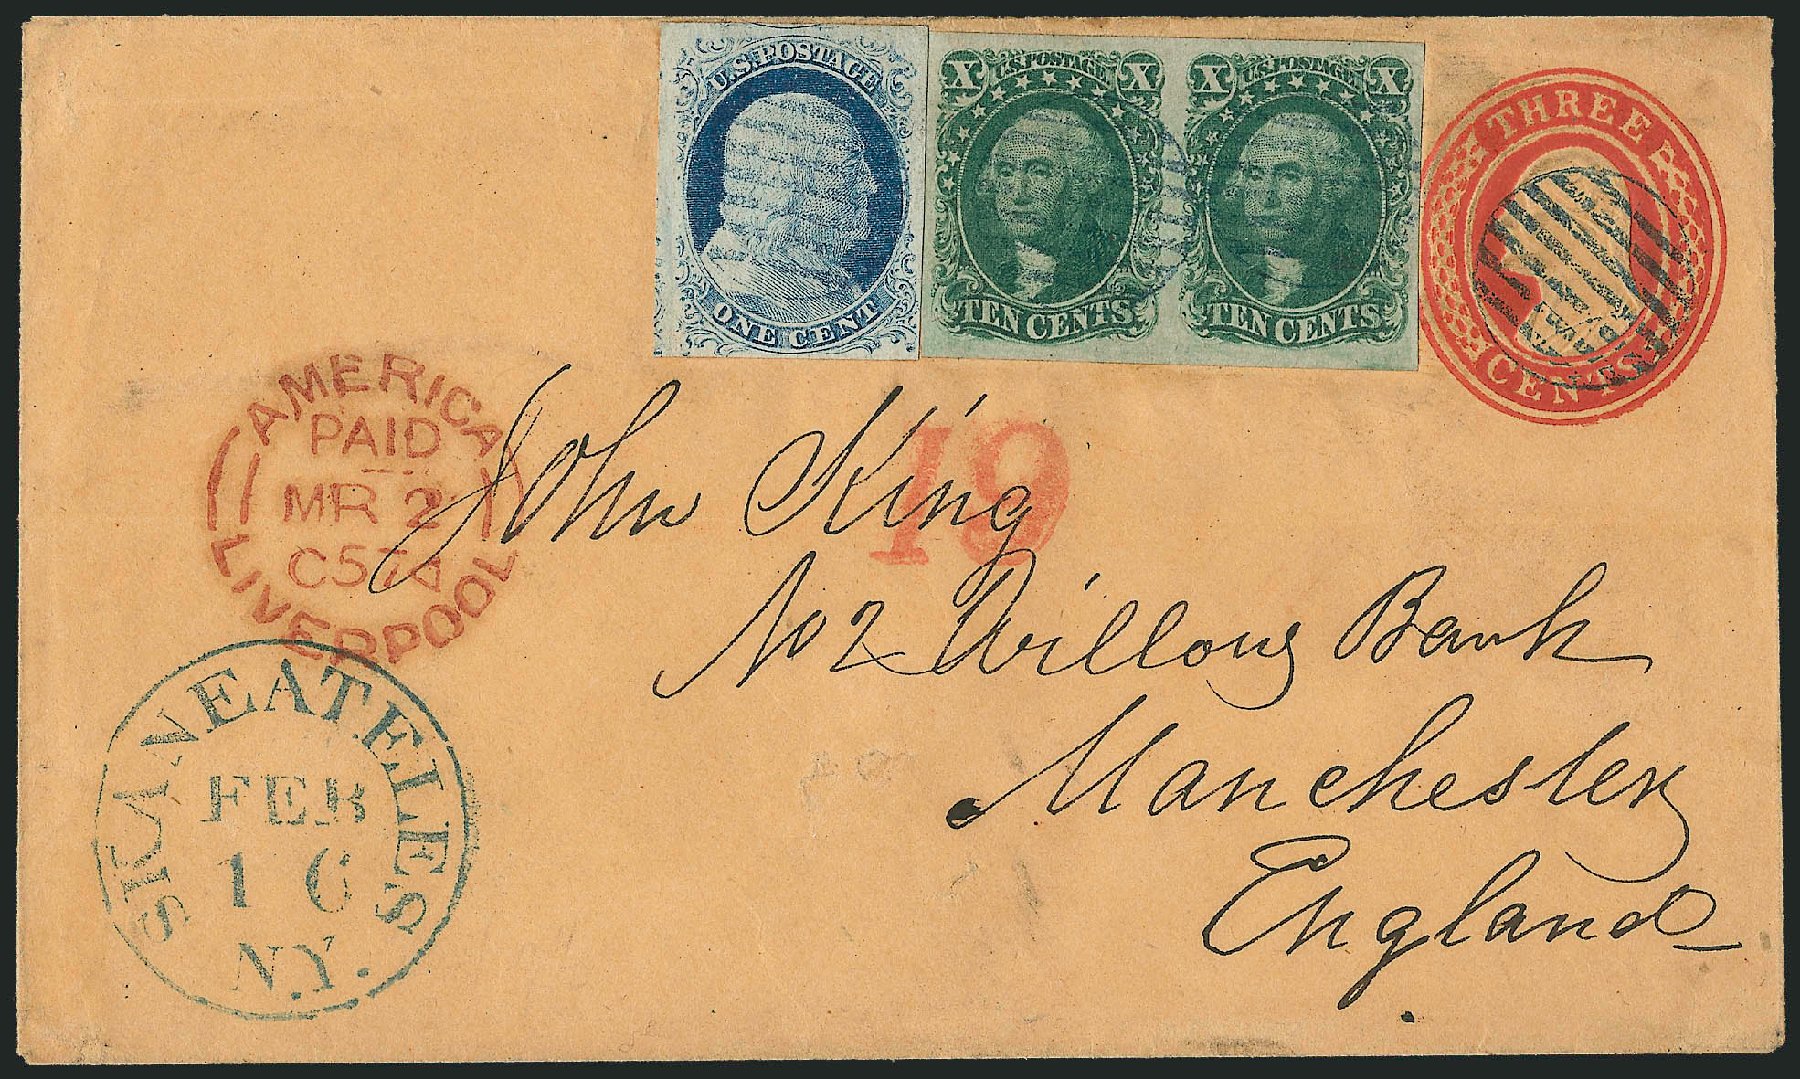 U.S. POSTAGE
ONE CENT
X U.S. POSTAGE X
TEN CENTS
X U.S. POSTAGE X
TEN CENTS
THREE
CENTS
AMERICA
PAID
MR 2
LIVERPOOL
19
John King
No 2 Willow Bank
Manchester
England
SKANEATELES
FEB
16
N.Y.